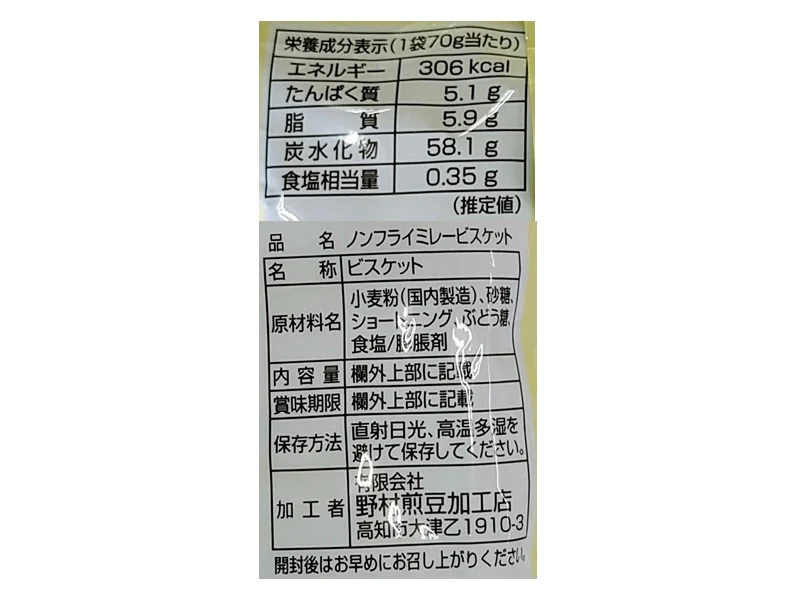 栄養成分表示(1袋70g当たり)
エネルギー 306kcal
たんぱく質 5.1g
脂質 5.9g
炭水化物 58.1g
食塩相当量 0.35g
(推定値)
品名 ノンフライミレービスケット
名称 ビスケット
原材料名 小麦粉(国内製造)、砂糖、
ショートニング、ぶどう糖、
食塩/膨脹剤
内容量 欄外上部に記載
賞味期限 欄外上部に記載
保存方法 直射日光、高温多湿を
避けて保存してください。
加工者 有限会社
野村煎豆加工店
高知市大津乙1910-3
開封後はお早めにお召し上がりください。